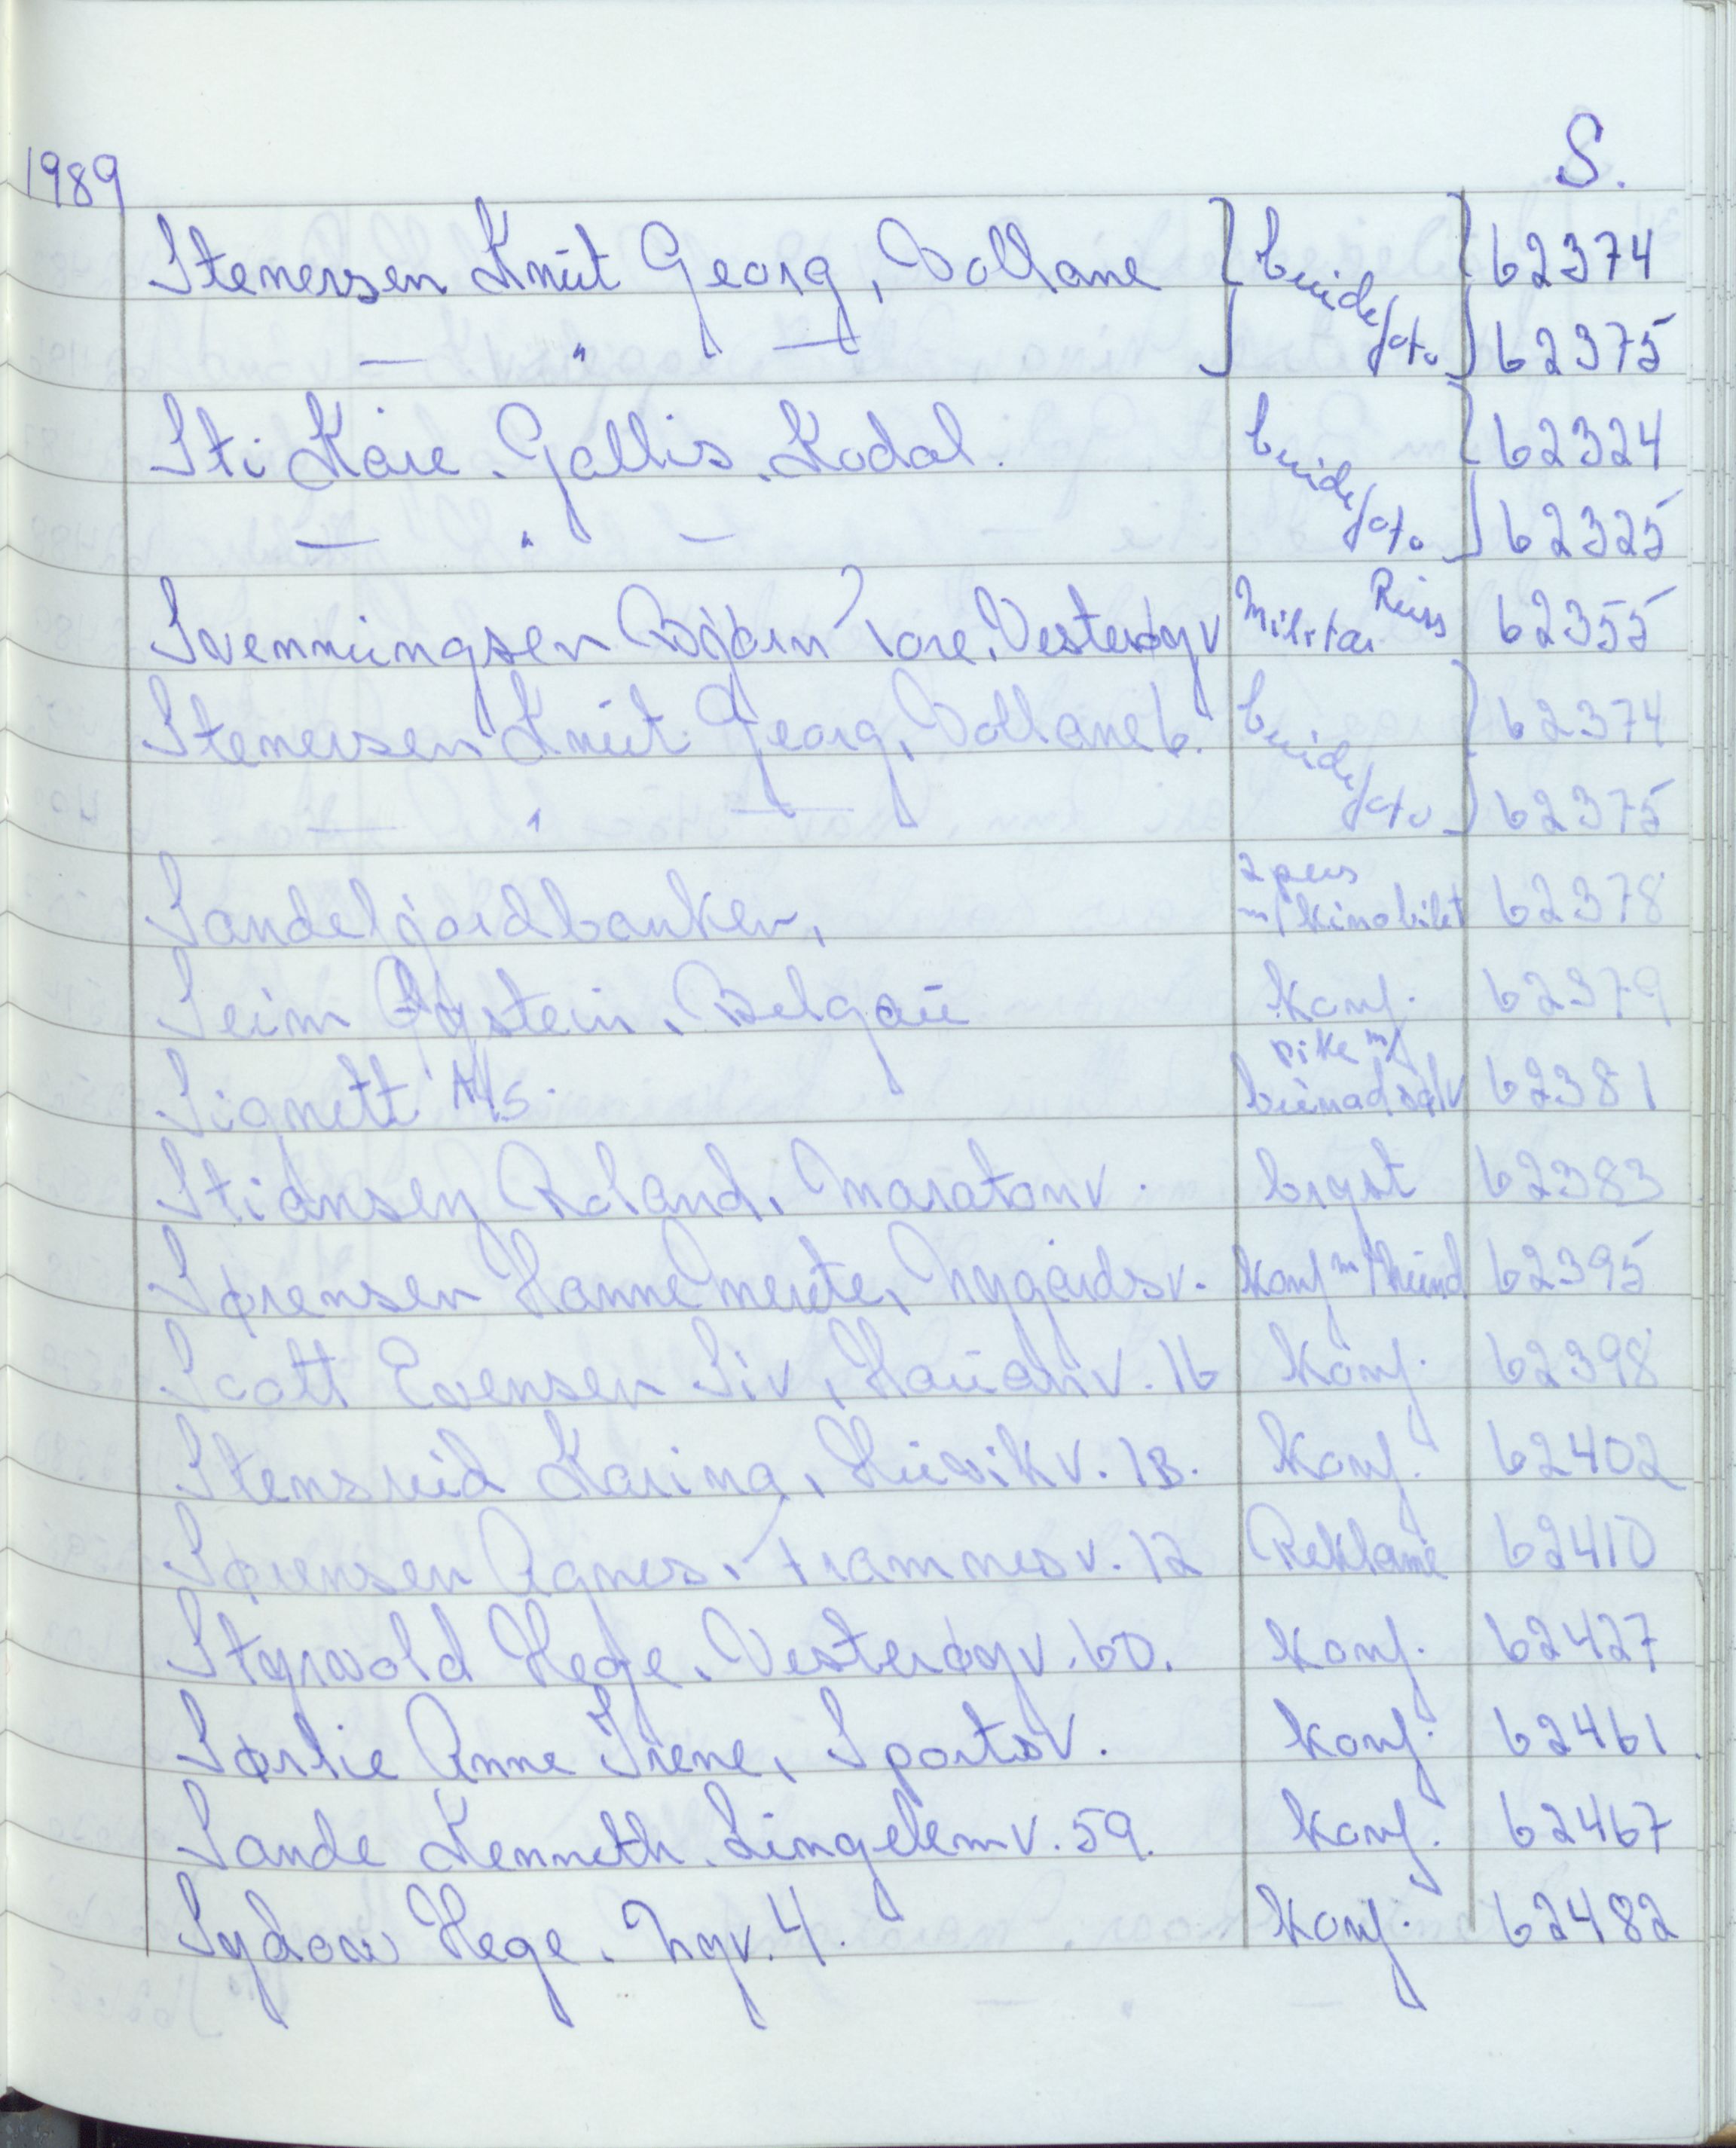 S.
1989
Stenersen Knut Georg, Vollane } brude/foto } 62374
— " — 62375
Sti Kåre. Gallis, Kodal. brude/foto } 62324
— " — 62325
Svenningsen Bjørn Tore. Vesterøyv Militær 62355
Stenersen Knut Georg, Vollane 6. brude/foto } 62374
— " — 62375
Sandefjordbanken, 2 pers m/kinobilet 62378
Seim Øystein, Belgau Konf. 62379
Signett A/S. pike m/ bunadsølv 62381
Stiansen Roland, Maratonv. bryst 62383
Sørensen Hanne Merete, Nygårdsv. Konf m/hund 62395
Scott Evensen Siv, Haukeliv. 16 Konf. 62398
Stensrud Karina, Husvikv. 13. Konf. 62402
Sørensen Agnes, Framnesv. 12 Reklame 62410
Styrvold Hege. Vesterøyv. 60. Konf. 62427
Sørlie Anne Irene, Sportsv. Konf. 62461
Sande Kenneth. Lingelemv. 59. Konf. 62467
Sydow Hege. Nyv. 4. Konf. 62482